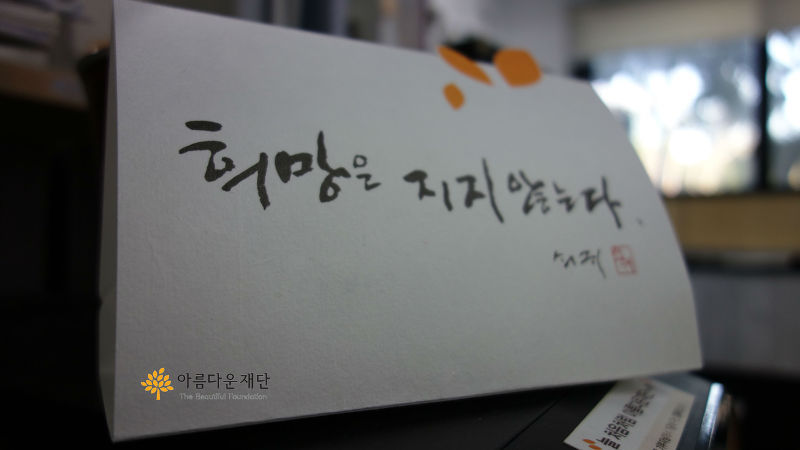 희망은 지지 않는다.
아름다운재단
The Beautiful Foundation